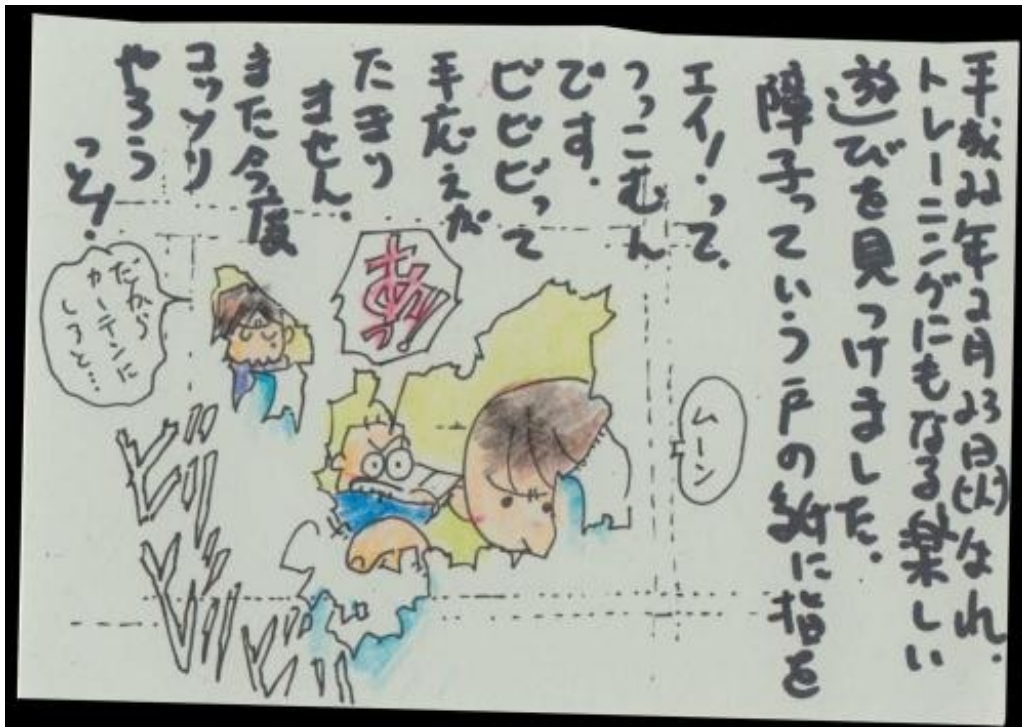 平成22年2月23日(火)はれ.
トレーニングにもなる楽しい
遊びを見つけました.
障子っていう戸の紙に指を
エイ!って.
つっこむん
です.
ビビビって
手応えが
たまり
ません.
また今度
コッソリ
やろう
っと!
ムーン
あっ!
だから
カーテンに
しろと…
ビリ
ビリ
ビリ